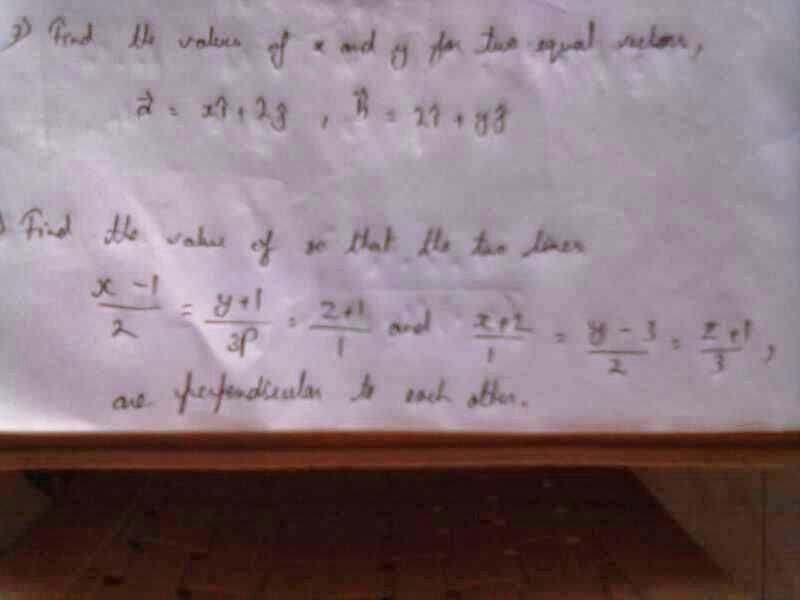 3) Find the values of x and y for two equal vectors,
a⃗ = xî + 2ĵ , b⃗ = 2î + yĵ
) Find the value of so that the two lines
x - 1 / 2 = y + 1 / 3p = z + 1 / 1 and x + 2 / 1 = y - 3 / 2 = z + 1 / 3 ,
are perpendicular to each other.